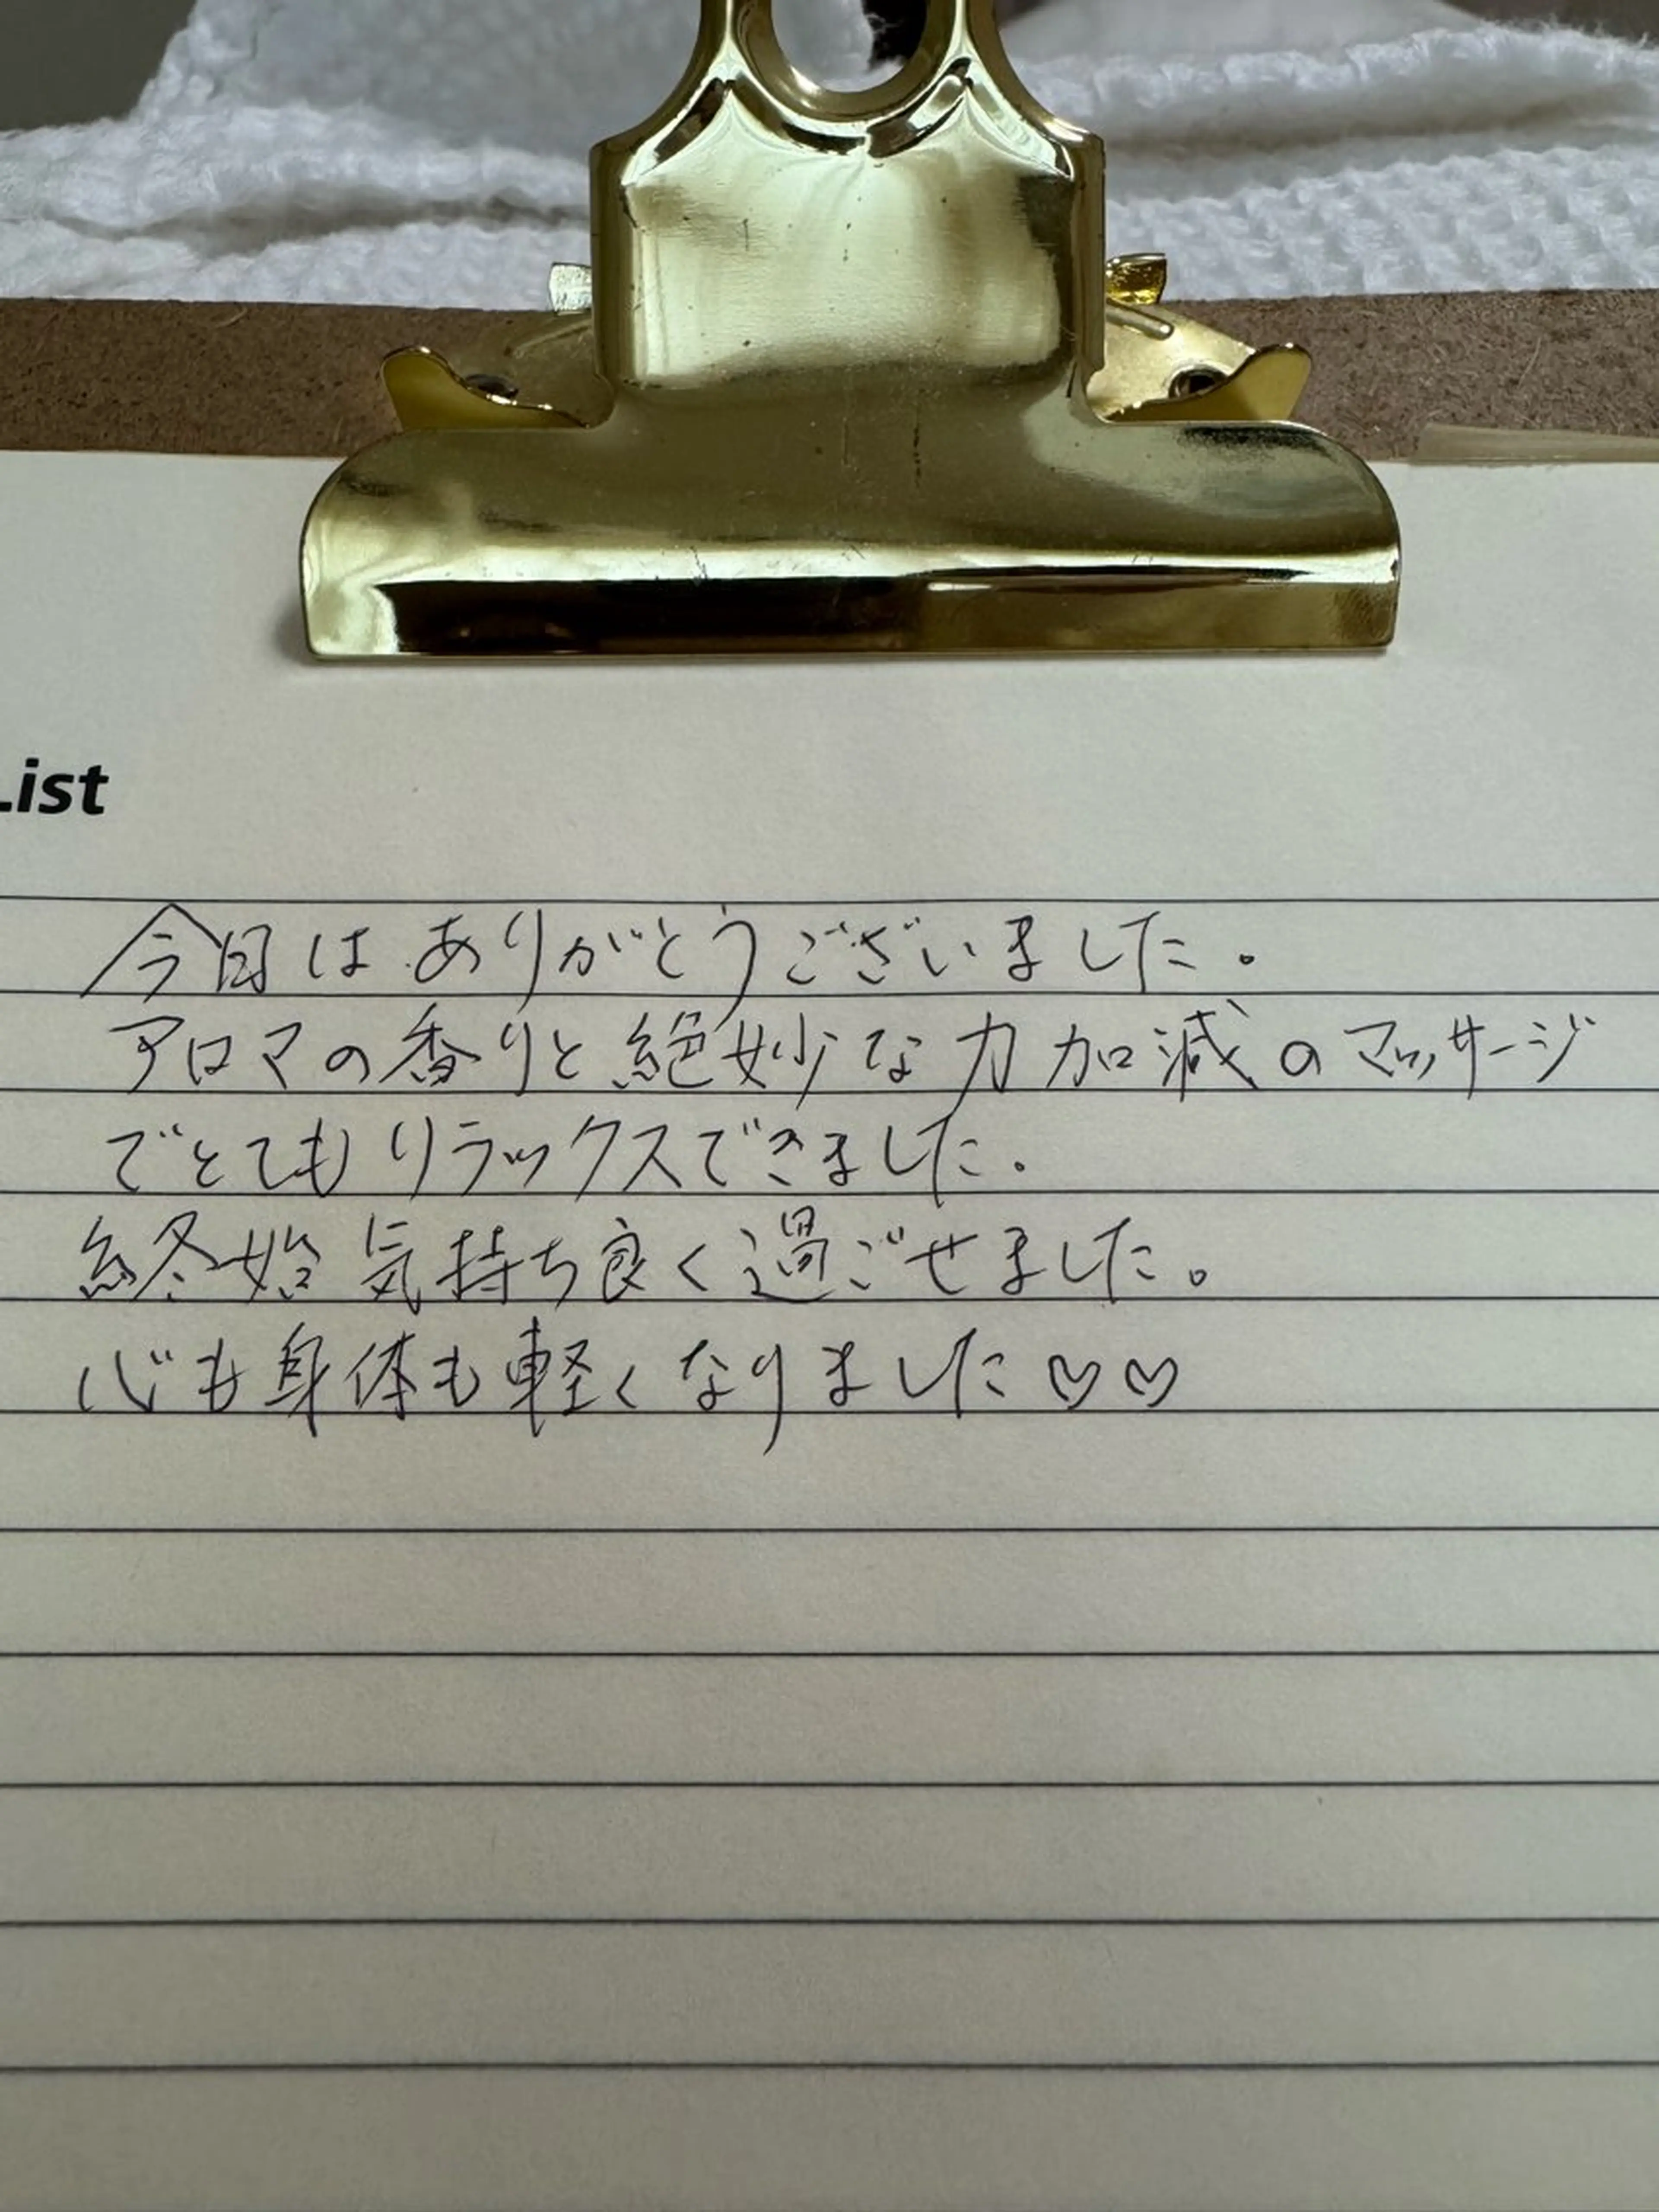 List
今日はありがとうございました。
アロマの香りと絶妙な力加減のマッサージ
でとてもリラックスできました。
終始気持ち良く過ごせました。
心も身体も軽くなりました♡♡